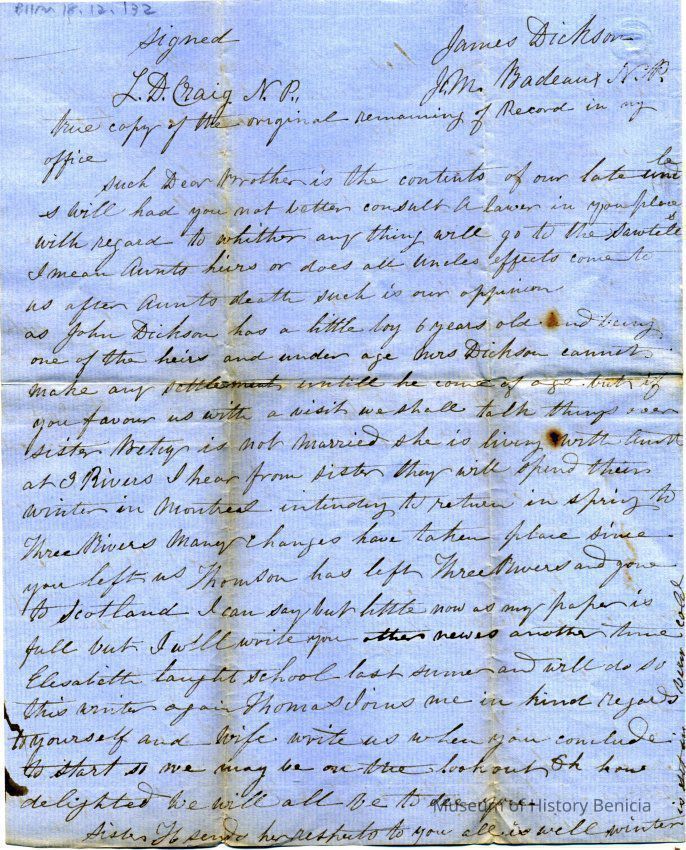 BHM 18.12.192
Signed
James Dickson
L. D. Craig N. P.,
J. M. Badeaux N. P.
true copy of the original remaining of Record in my
office
Such Dear Brother is the contents of our late uncle
s will had you not better consult A lawer in you place
with regard to whither any thing will go to the Sawtells
I mean Aunts heirs or does all uncles effects come to
us after Aunts death such is our oppinion
as John Dickson has a little boy 6 years old and being
one of the heirs and under age Mrs Dickson cannot
make any settlement untill he come of age. but if
you favour us with a visit we shall talk things over
sister Betsy is not married she is living with Aunt
at 3 Rivers I hear from sister they will spend their
winter in Montreal intending to return in spring to
Three Rivers Many changes have taken place since
you left us Thomson has left Three Rivers and gone
to Scotland I can say but little now as my paper is
full but I will write you other newes another time
Elisabeth taught school last sumer and will do so
this winter again Thomas Joins me in kind regards
to yourself and Wife write us when you conclude
to start so we may be on the lookout Oh how
delighted We will all be to see you
Sister H sends her respects to you all is well winter
is set in very cold
Museum of History Benicia